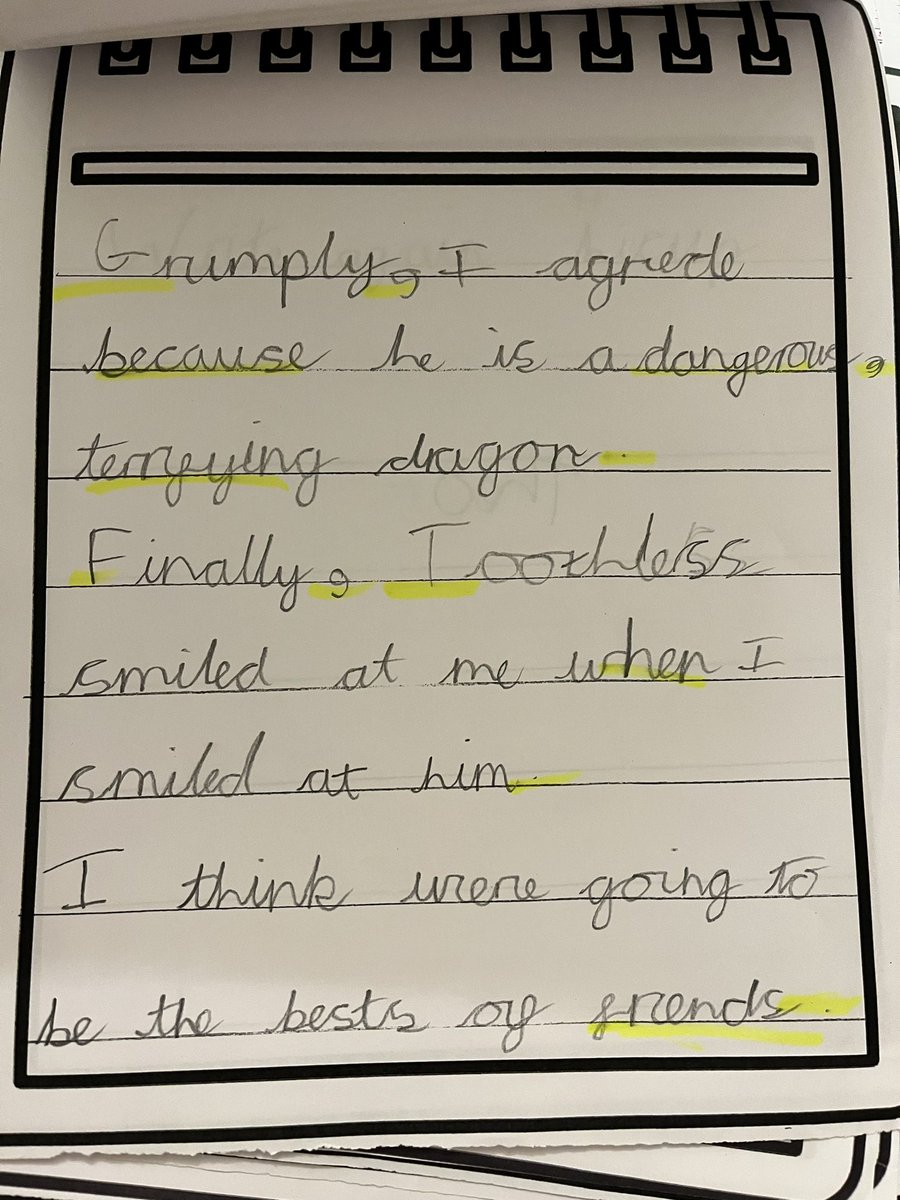 Grumply, I agriede
because he is a dangerous,
terryying dragon.
Finally, Toothless
smiled at me when I
smiled at him.
I think were going to
be the bests of friends.